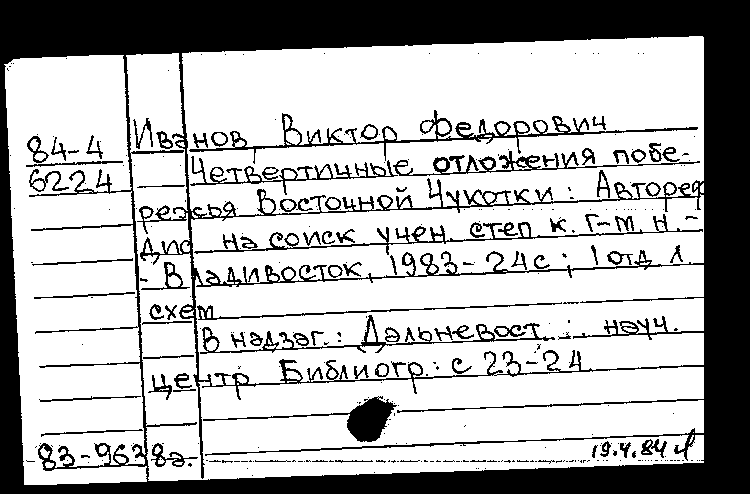 84-4
6224
Иванов, Виктор Федорович
Четвертичные отложения побе-
режья Восточной Чукотки: Автореф
дис на соиск учен. степ к. г-м. н. -
- Владивосток, 1983-24с; 1 отд л.
схем
В надзаг.: Дальневост. науч.
центр Библиогр: с 23-24
83-9638а.
19.4.84